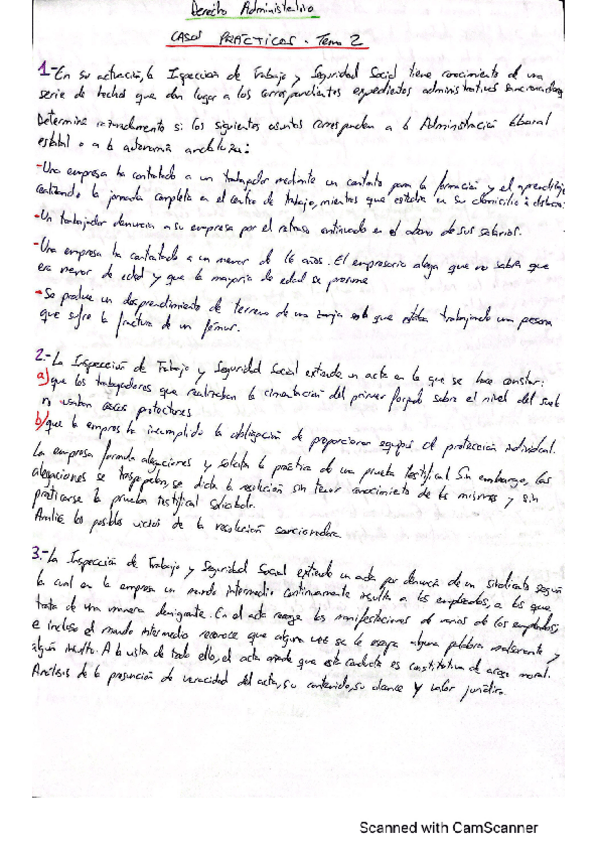 Derecho Administrativo
CASOS PRÁCTICOS - Tema 2
1.- En su actuación, la Inspección de Trabajo y Seguridad Social tiene conocimiento de una
serie de hechos que dan lugar a los correspondientes expedientes administrativos sancionadores
Determine razonadamente si los siguientes asuntos corresponden a la Administración laboral
estatal o a la autonomía andaluza:
- Una empresa ha contratado a un trabajador mediante un contrato para la formación y el aprendizaje
realizando la jornada completa en el centro de trabajo, mientras que estudia en su domicilio a distancia.
- Un trabajador denuncia a su empresa por el retraso continuado en el abono de sus salarios.
- Una empresa ha contratado a un menor de 16 años. El empresario alega que no sabía que
era menor de edad y que la mayoría de edad se presume
- Se produce un desprendimiento de terreno de una zanja en la que estaba trabajando una persona
que sufre la fractura de un fémur.
2.- La Inspección de Trabajo y Seguridad Social extiende un acta en la que se hace constar:
a) que los trabajadores que realizaban la cimentación del primer forjado sobre el nivel del suelo
no usaban cascos protectores
b) que la empresa ha incumplido la obligación de proporcionar equipos de protección individual.
La empresa formula alegaciones y solicita la práctica de una prueba testifical. Sin embargo, las
alegaciones se traspapelan, se dicta la resolución sin tener conocimiento de las mismas y sin
practicarse la prueba testifical solicitada.
Analice los posibles vicios de la resolución sancionadora
3.- La Inspección de Trabajo y Seguridad Social extiende un acta por denuncia de un sindicato según
la cual en la empresa un mando intermedio continuamente insulta a los empleados, a los que
trata de una manera denigrante. En el acta recoge las manifestaciones de varios de los empleados,
e incluso el mando intermedio reconoce que alguna vez se le escapa alguna palabra malsonante y
algún insulto. A la vista de todo ello, el acta añade que esta conducta es constitutiva de acoso moral.
Análisis de la presunción de veracidad del acta, su contenido, su alcance y valor jurídico.
Scanned with CamScanner